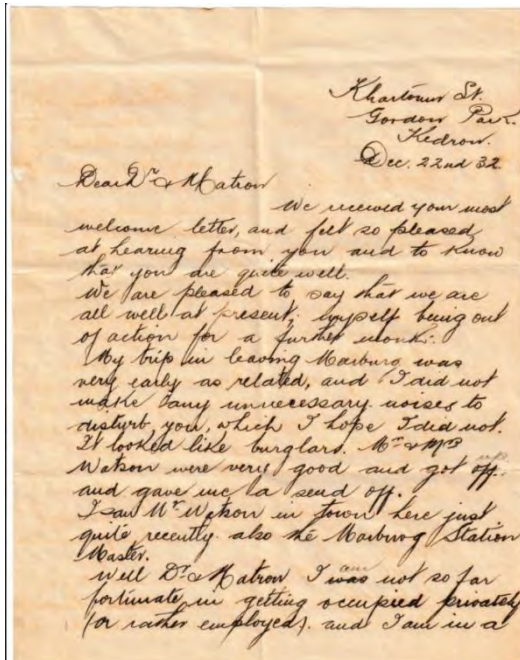 Khartoum St.
Gordon Park.
Kedron.
Dec. 22nd 32
Dear Dr & Matron
We received your most
welcome letter, and felt so pleased
at hearing from you and to know
that you are quite well.
We are pleased to say that we are
all well at present; myself being out
of action for a further month.
My trip in leaving Marburg was
very early as related, and I did not
make any unnecessary noises to
disturb you, which I hope I did not.
It looked like burglars. Mr & Mrs
Watson were very good and got up
and gave me a send off.
I saw Mr Watson in town here just
quite recently. also the Marburg Station
Master.
Well Dr & Matron I am not so far
fortunate in getting occupied privately
(or rather employed). and I am in a